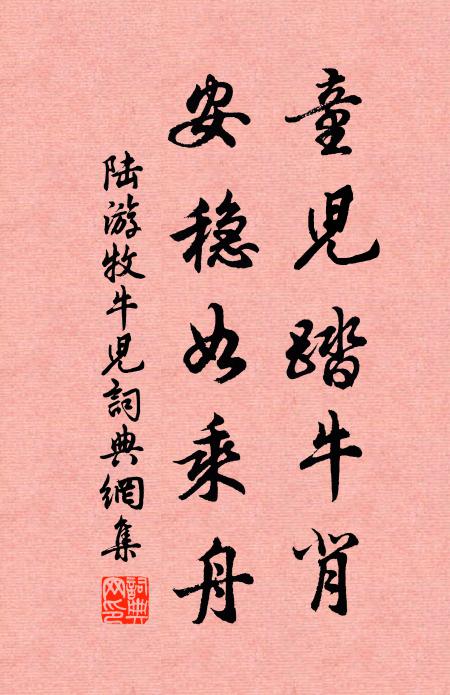 童兒踏牛背
安穩如乘舟
陸游牧牛兒詞典網集
詞典
网印